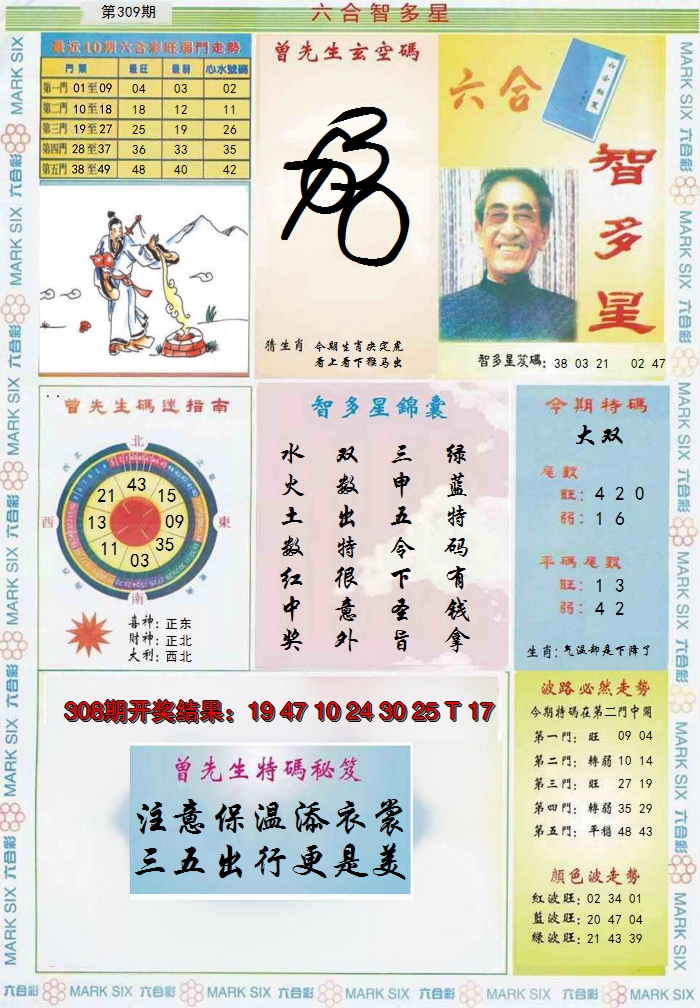 第309期
六合智多星
最近10期六合彩旺弱門走勢
門類 最旺 最弱 心水號碼
第一門 01至09 04 03 02
第二門 10至18 18 12 11
第三門 19至27 25 19 26
第四門 28至37 36 33 35
第五門 38至49 48 40 42
曾先生玄空碼
猜生肖
今期生肖决定虎
看上看下猴马出
六合
智多星
智多星笈碼: 38 03 21 02 47
曾先生碼迷指南
北
西
東
南
21 43 15
13 09
11 03 35
喜神: 正东
財神: 正北
大利: 西北
智多星錦囊
绿蓝特码有钱拿
三申五令下圣旨
双数出特很意外
水火土数红中奖
今期特碼
大双
尾數
旺: 4 2 0
弱: 1 6
平碼尾數
旺: 1 3
弱: 4 2
生肖: 气温却是下降了
308期开奖结果: 19 47 10 24 30 25 T 17
曾先生特碼秘笈
注意保温添衣裳
三五出行更是美
波路必然走勢
今期特碼在第二門中開
第一門: 旺 09 04
第二門: 轉弱 10 14
第三門: 旺 27 19
第四門: 轉弱 35 29
第五門: 平穩 48 43
顔色波走勢
紅波旺: 02 34 01
藍波旺: 20 47 04
綠波旺: 21 43 39
六合彩 MARK SIX 六合彩 MARK SIX 六合彩 MARK SIX 六合彩 MARK SIX 六合彩